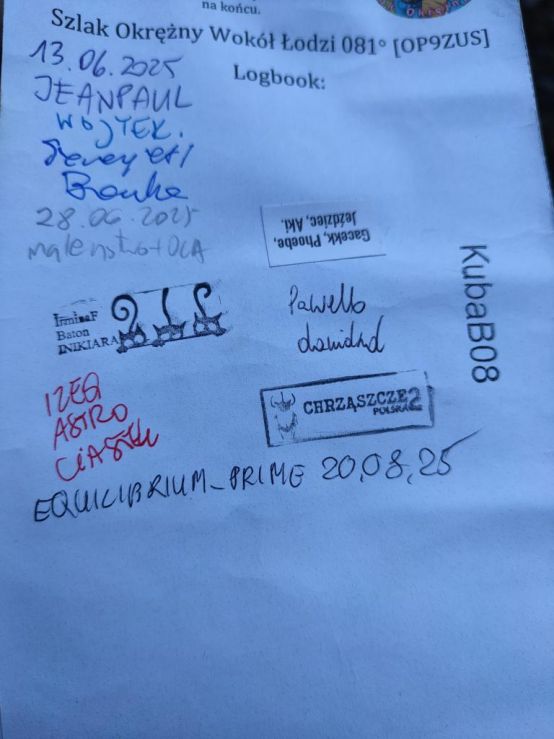 na końcu.
Szlak Okrężny Wokół Łodzi 081° [OP9ZUS]
Logbook:
13.06.2025
JEANPAUL
WOJTEK.
28.06.2025
maleństwo+OLA
Gacekk, Phoebe,
Jeździec, Aki.
KubaB08
IrminaF
Baton
INIKIARA
Pawello
dawidnd
IZEQ
ASTRO
CIASTEK
CHRZĄSZCZE2
POLSKA
EQUILIBRIUM_PRIME 20,08,25